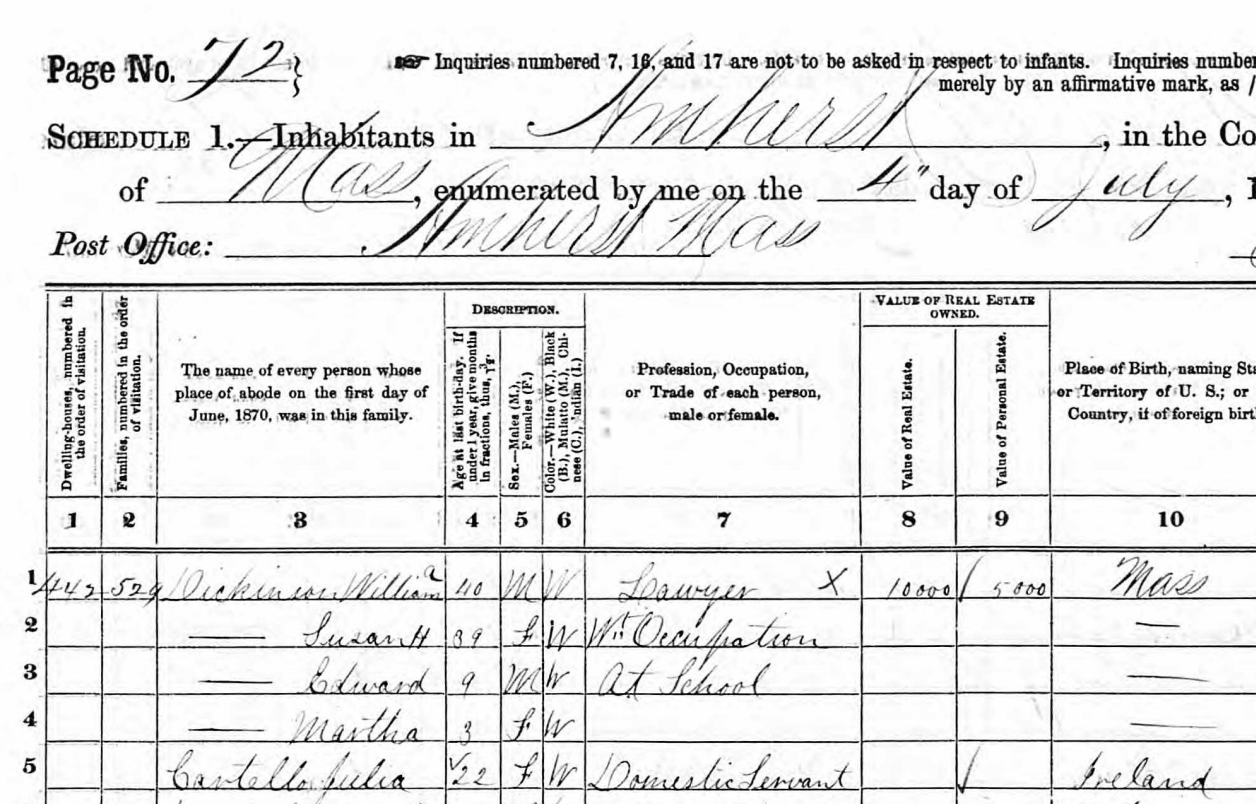 Page No. 72 }
☞ Inquiries numbered 7, 16, and 17 are not to be asked in respect to infants. Inquiries number
merely by an affirmative mark, as /
SCHEDULE 1.—Inhabitants in Amherst, in the Co
of Mass, enumerated by me on the 4" day of July, 1
Post Office: Amherst Mass
Dwelling-houses, numbered in the order of visitation.
Families, numbered in the order of visitation.
The name of every person whose
place of abode on the first day of
June, 1870, was in this family.
DESCRIPTION.
Age at last birth-day. If under 1 year, give months in fractions, thus, 3/12.
Sex.—Males (M.), Females (F.)
Color.—White (W.), Black (B.), Mulatto (M.), Chinese (C.), Indian (I.)
Profession, Occupation,
or Trade of each person,
male or female.
VALUE OF REAL ESTATE
OWNED.
Value of Real Estate.
Value of Personal Estate.
Place of Birth, naming Sta
or Territory of U. S.; or
Country, if of foreign birt
1 2 3 4 5 6 7 8 9 10
1 442 529 Dickinson William a 40 M W Lawyer X 10000 / 5000 Mass
2 — Susan H 39 F W Wt Occupation —
3 — Edward 9 M W At School —
4 — Martha 3 F W —
5 Cartello Julia 22 F W Domestic Servant / Ireland